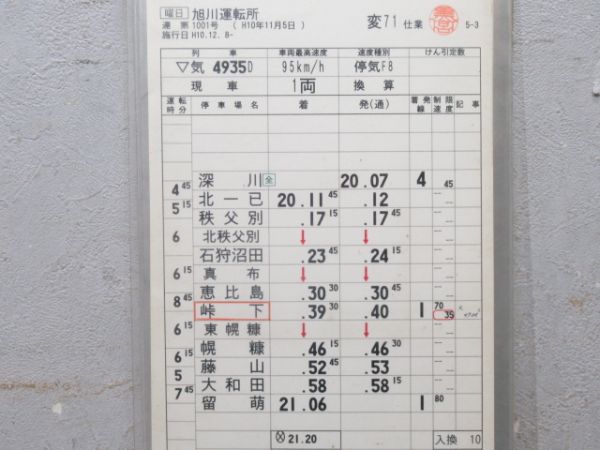 曜日 旭川運転所
達 第1001号 ( H10年11月5日 )
施行日 H10.12. 8-
変71 仕業
5-3
列 車 車両最高速度 速度種別 けん引定数
▽気 4935D 95km/h 停気F8
現 車 1両 換 算
運転時分 停車場名 着 発(通) 着発線 制限速度 記事
深 川 全 20.07 4 45
4 45
北一已 20.11 45 .12
5 15
秩父別 .17 15 .17 45
6
北秩父別 ↓ ↓
石狩沼田 .23 45 .24 15
6 15
真 布 ↓ ↓
恵比島 .30 30 .30 45
8 45
峠 下 .39 30 .40 1 70 35
6 15
東幌糠 ↓ ↓
幌 糠 .46 15 .46 30
6 15
藤 山 .52 45 .53
5
大和田 .58 .58 15
7 45
留 萌 21.06 1 80
21.20 入換 10